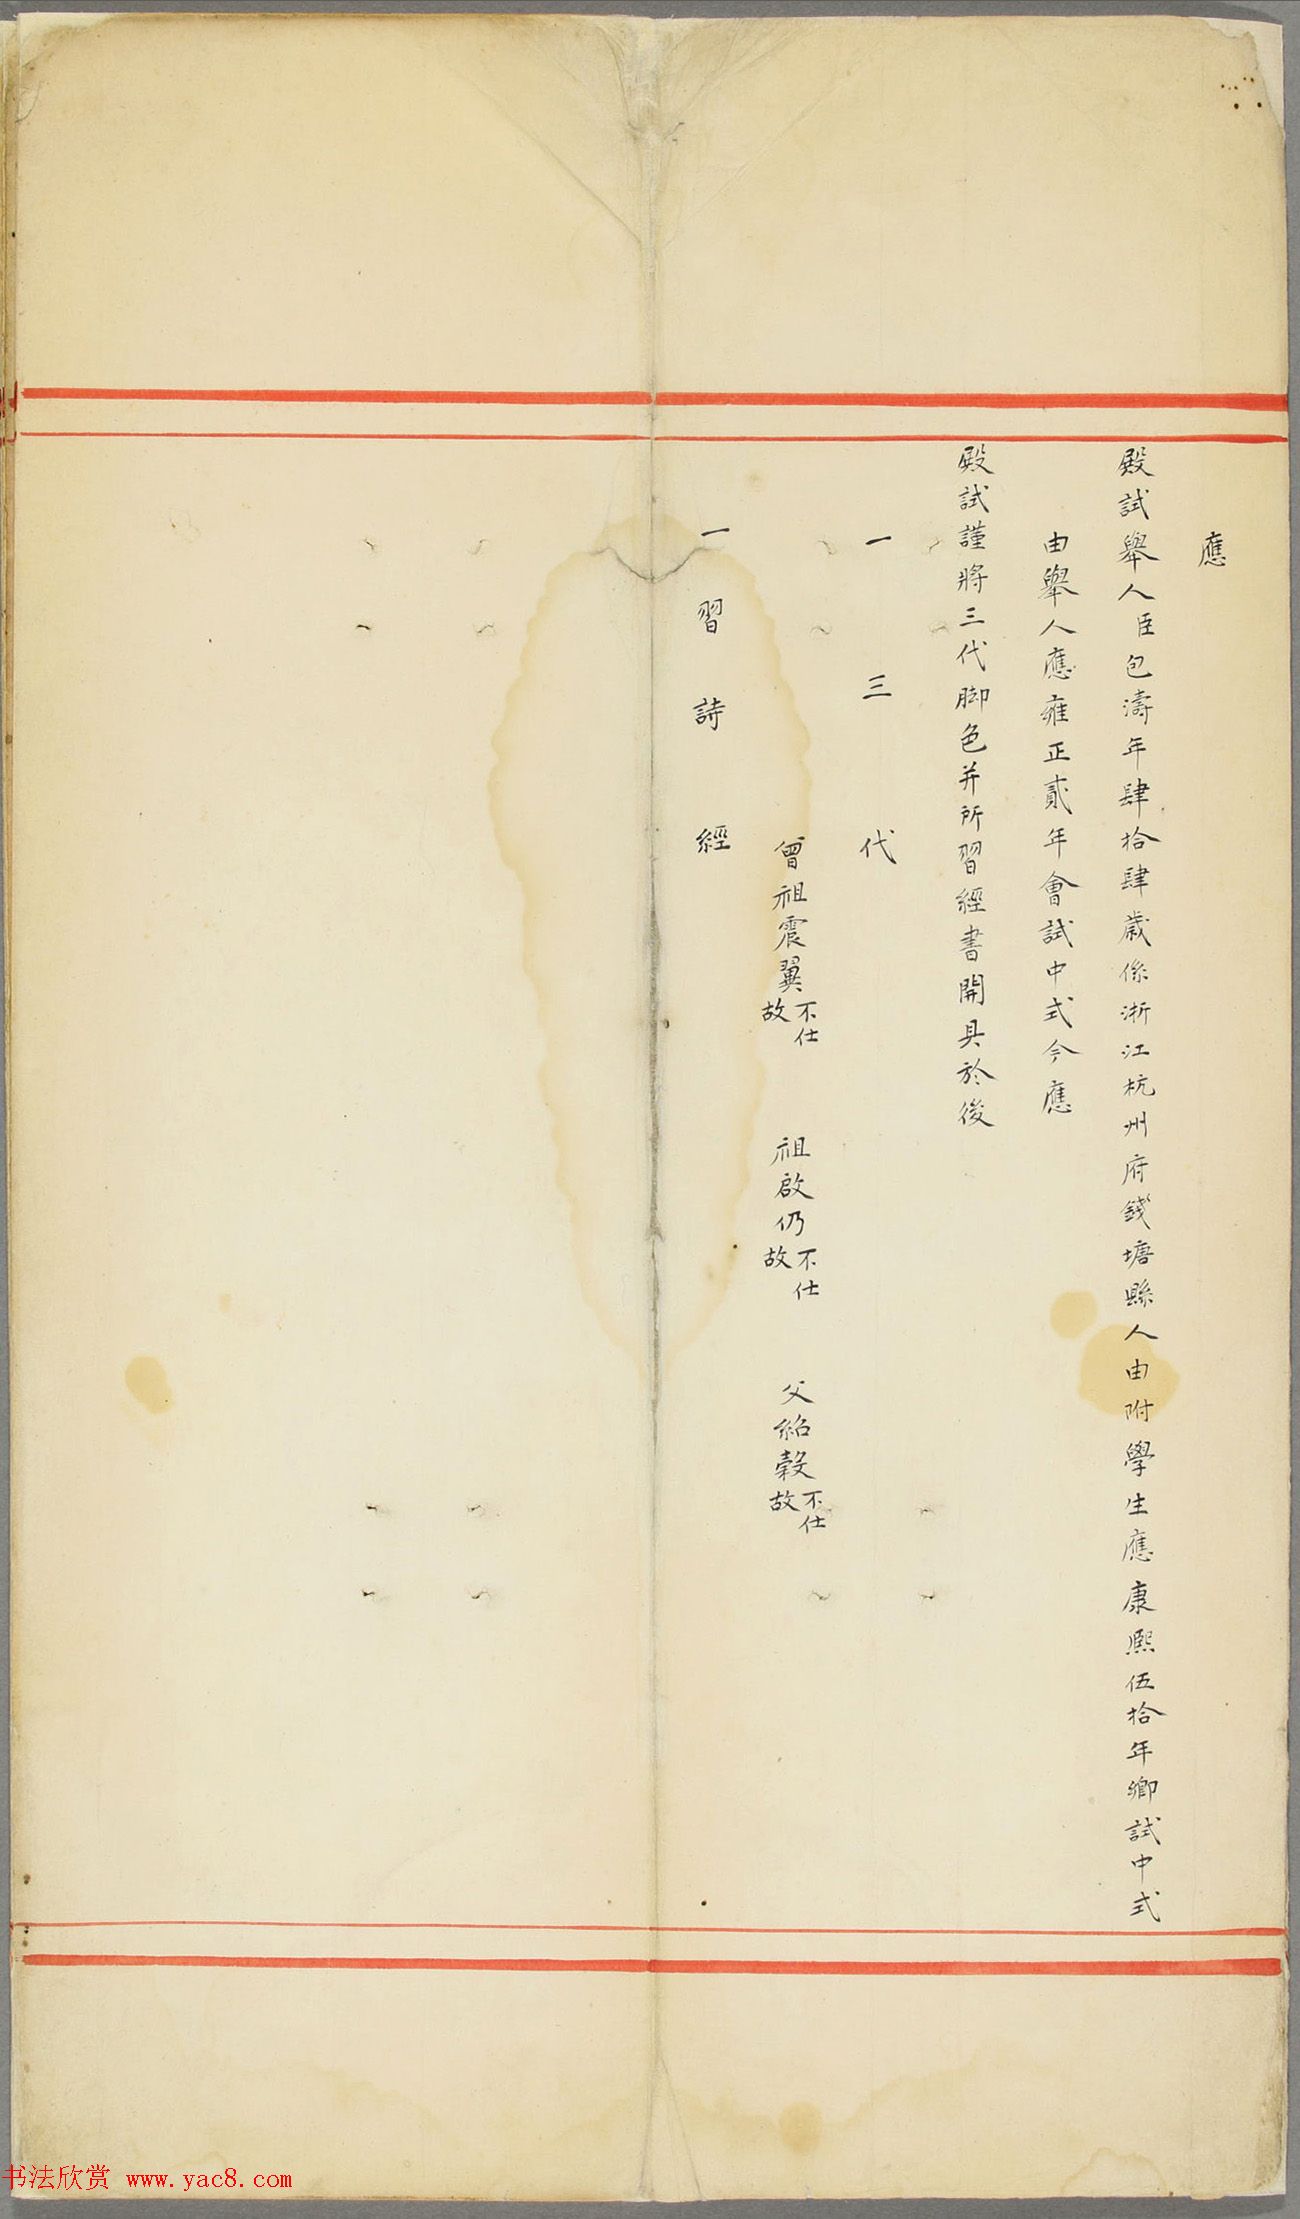 應
殿試舉人臣包濤年肆拾肆歲係浙江杭州府錢塘縣人由附學生應康熙伍拾年鄉試中式
由舉人應雍正貳年會試中式今應
殿試謹將三代脚色并所習經書開具於後
一三代
曾祖震翼不仕故 祖啟仍不仕故 父紹穀不仕故
一習詩經
书法欣赏 www.yac8.com